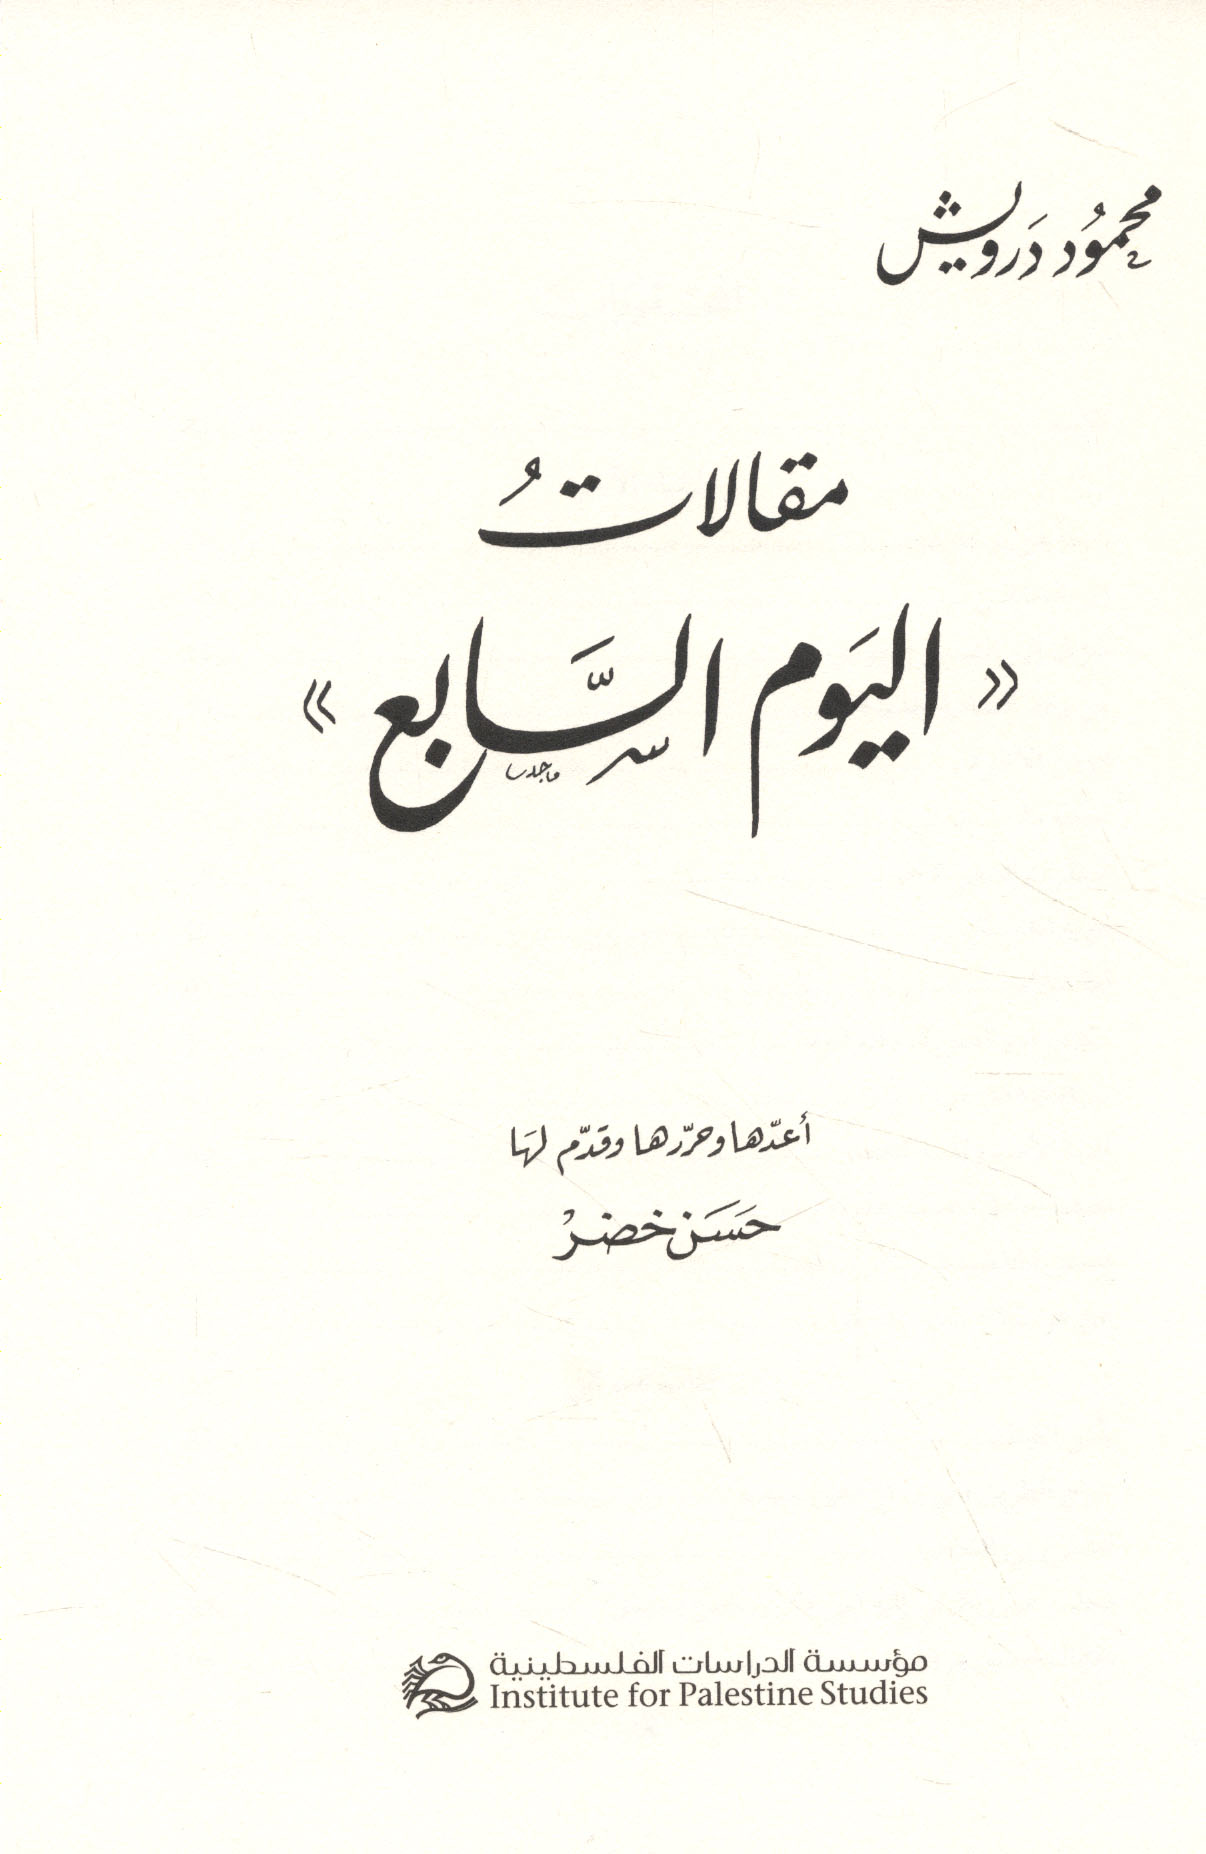 محمُود دَرويش
مقالاتُ
«اليَوم السَّابع»
ماجد
أعدّها وحرّرها وقدّم لهَا
حَسَن خضرْ
مؤسسة الدراسات الفلسطينية
Institute for Palestine Studies